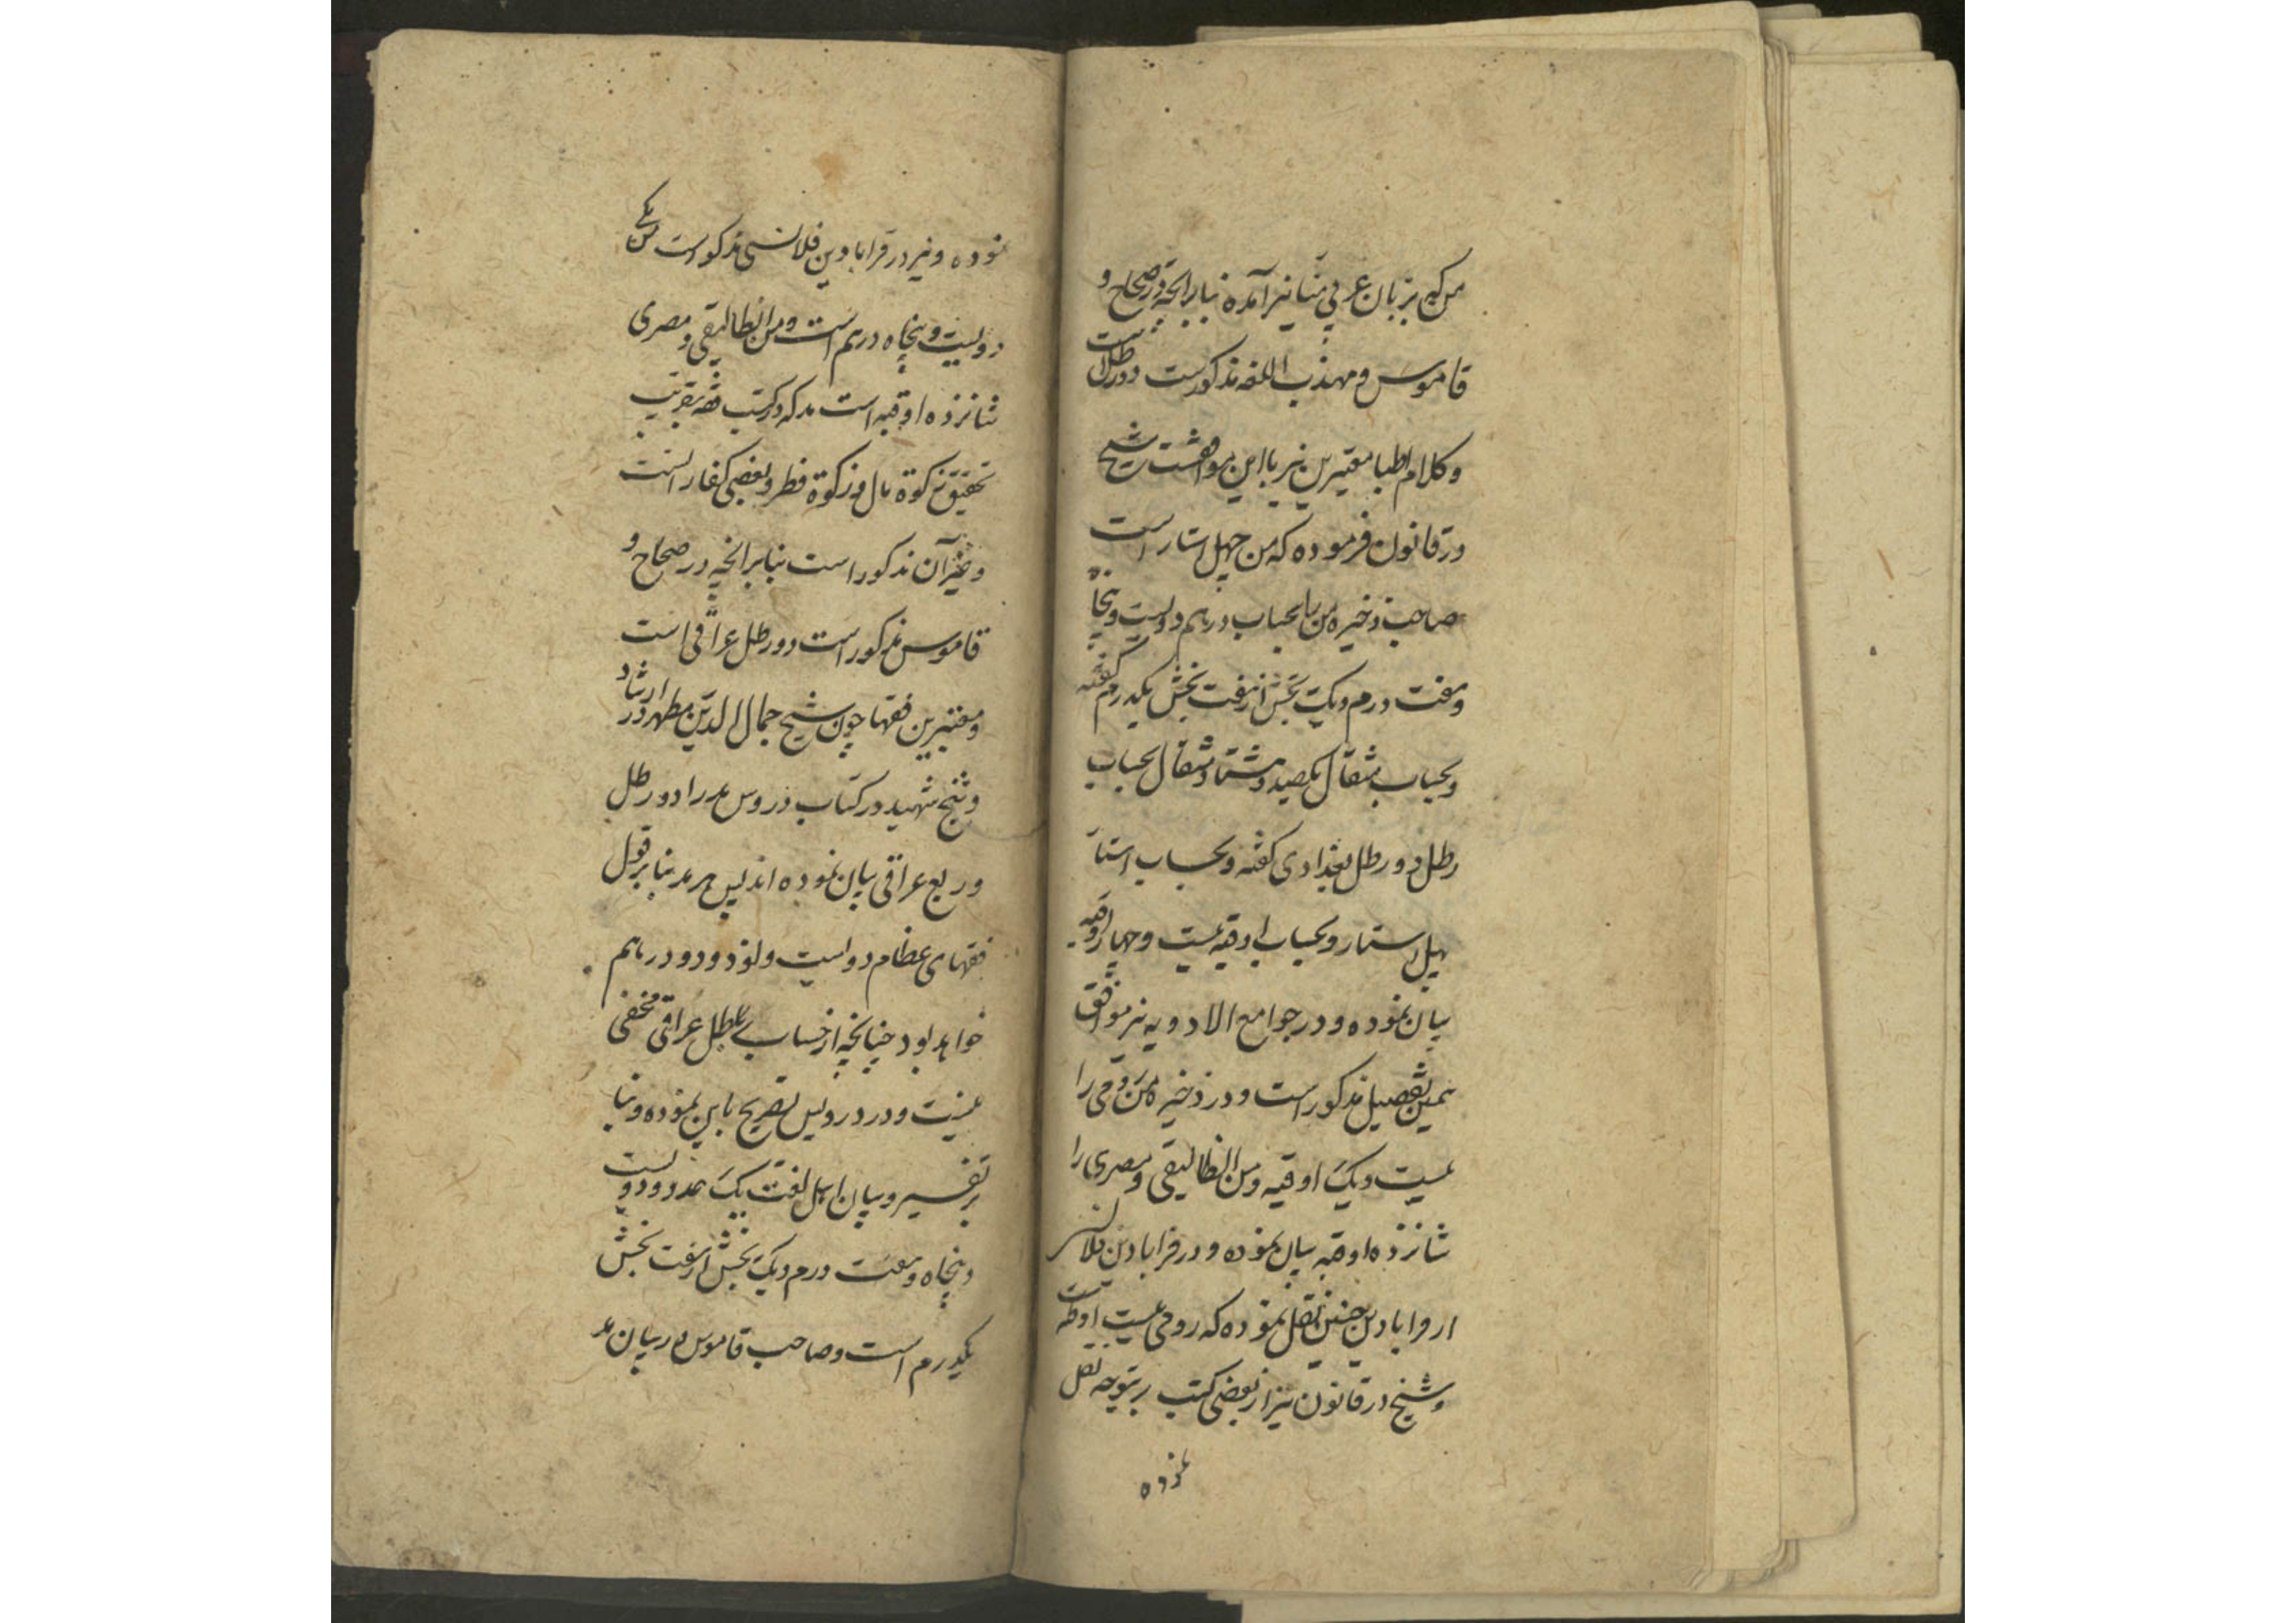 من که بزبان عربی منا نیز آمده بنابرانچه در صحاح و
قاموس و مهذب اللغه مذکورست دو رطل است
و کلام اطبا معتبرین نیز با این موافقست شیخ
در قانون فرموده که من چهل استار است
صاحب ذخیره من را بحساب درهم دویست و پنجاه
و هفت درم و یک بخش از هفت بخش یکدرم گفته
و بحساب مثقال یکصد و هشتاد مثقال بحساب
رطل دو رطل بغدادی گفته و بحساب استار
چهل استار و بحساب اوقیه بیست و چهار اوقیه
بیان نموده و در جوامع الادویه نیز موافق
همین تفصیل مذکور است و در ذخیره من رومی را
بیست و یک اوقیه و من انطالیقی و مصری را
شانزده اوقیه بیان نموده و در قرابادین قلانسی
از قرابادین چنین نقل نموده که رومی بیست اوقیه
و شیخ در قانون نیز از بعضی کتب نقل
نموده
نموده و نیز در قرابادین قلانسی مذکور است که من
دویست و پنجاه درهم است و من انطالیقی و مصری
شانزده اوقیه است مد که در کتب فقه بتقریب
تحقیق زکوة مال و زکوة فطر و بعضی کفارات
و غیر آن مذکور است بنابرانچه در صحاح و
قاموس مذکور است دو رطل عراقی است
و معتبرین فقها چون شیخ جمال الدین مطهر در ارشاد
و شیخ شهید در کتاب دروس مد را دو رطل
و ربع عراقی بیان نموده اند پس هر مد بنابر قول
فقهای عظام دویست و نود و دو درهم
خواهد بود چنانچه از حساب رطل عراقی مخفی
نیست و در دروس تصریح باین نموده و بنا
بر تفسیر و بیان اهل لغت یک مد دویست
و پنجاه و هفت درم و یک بخش از هفت بخش
یکدرم است و صاحب قاموس در بیان مد